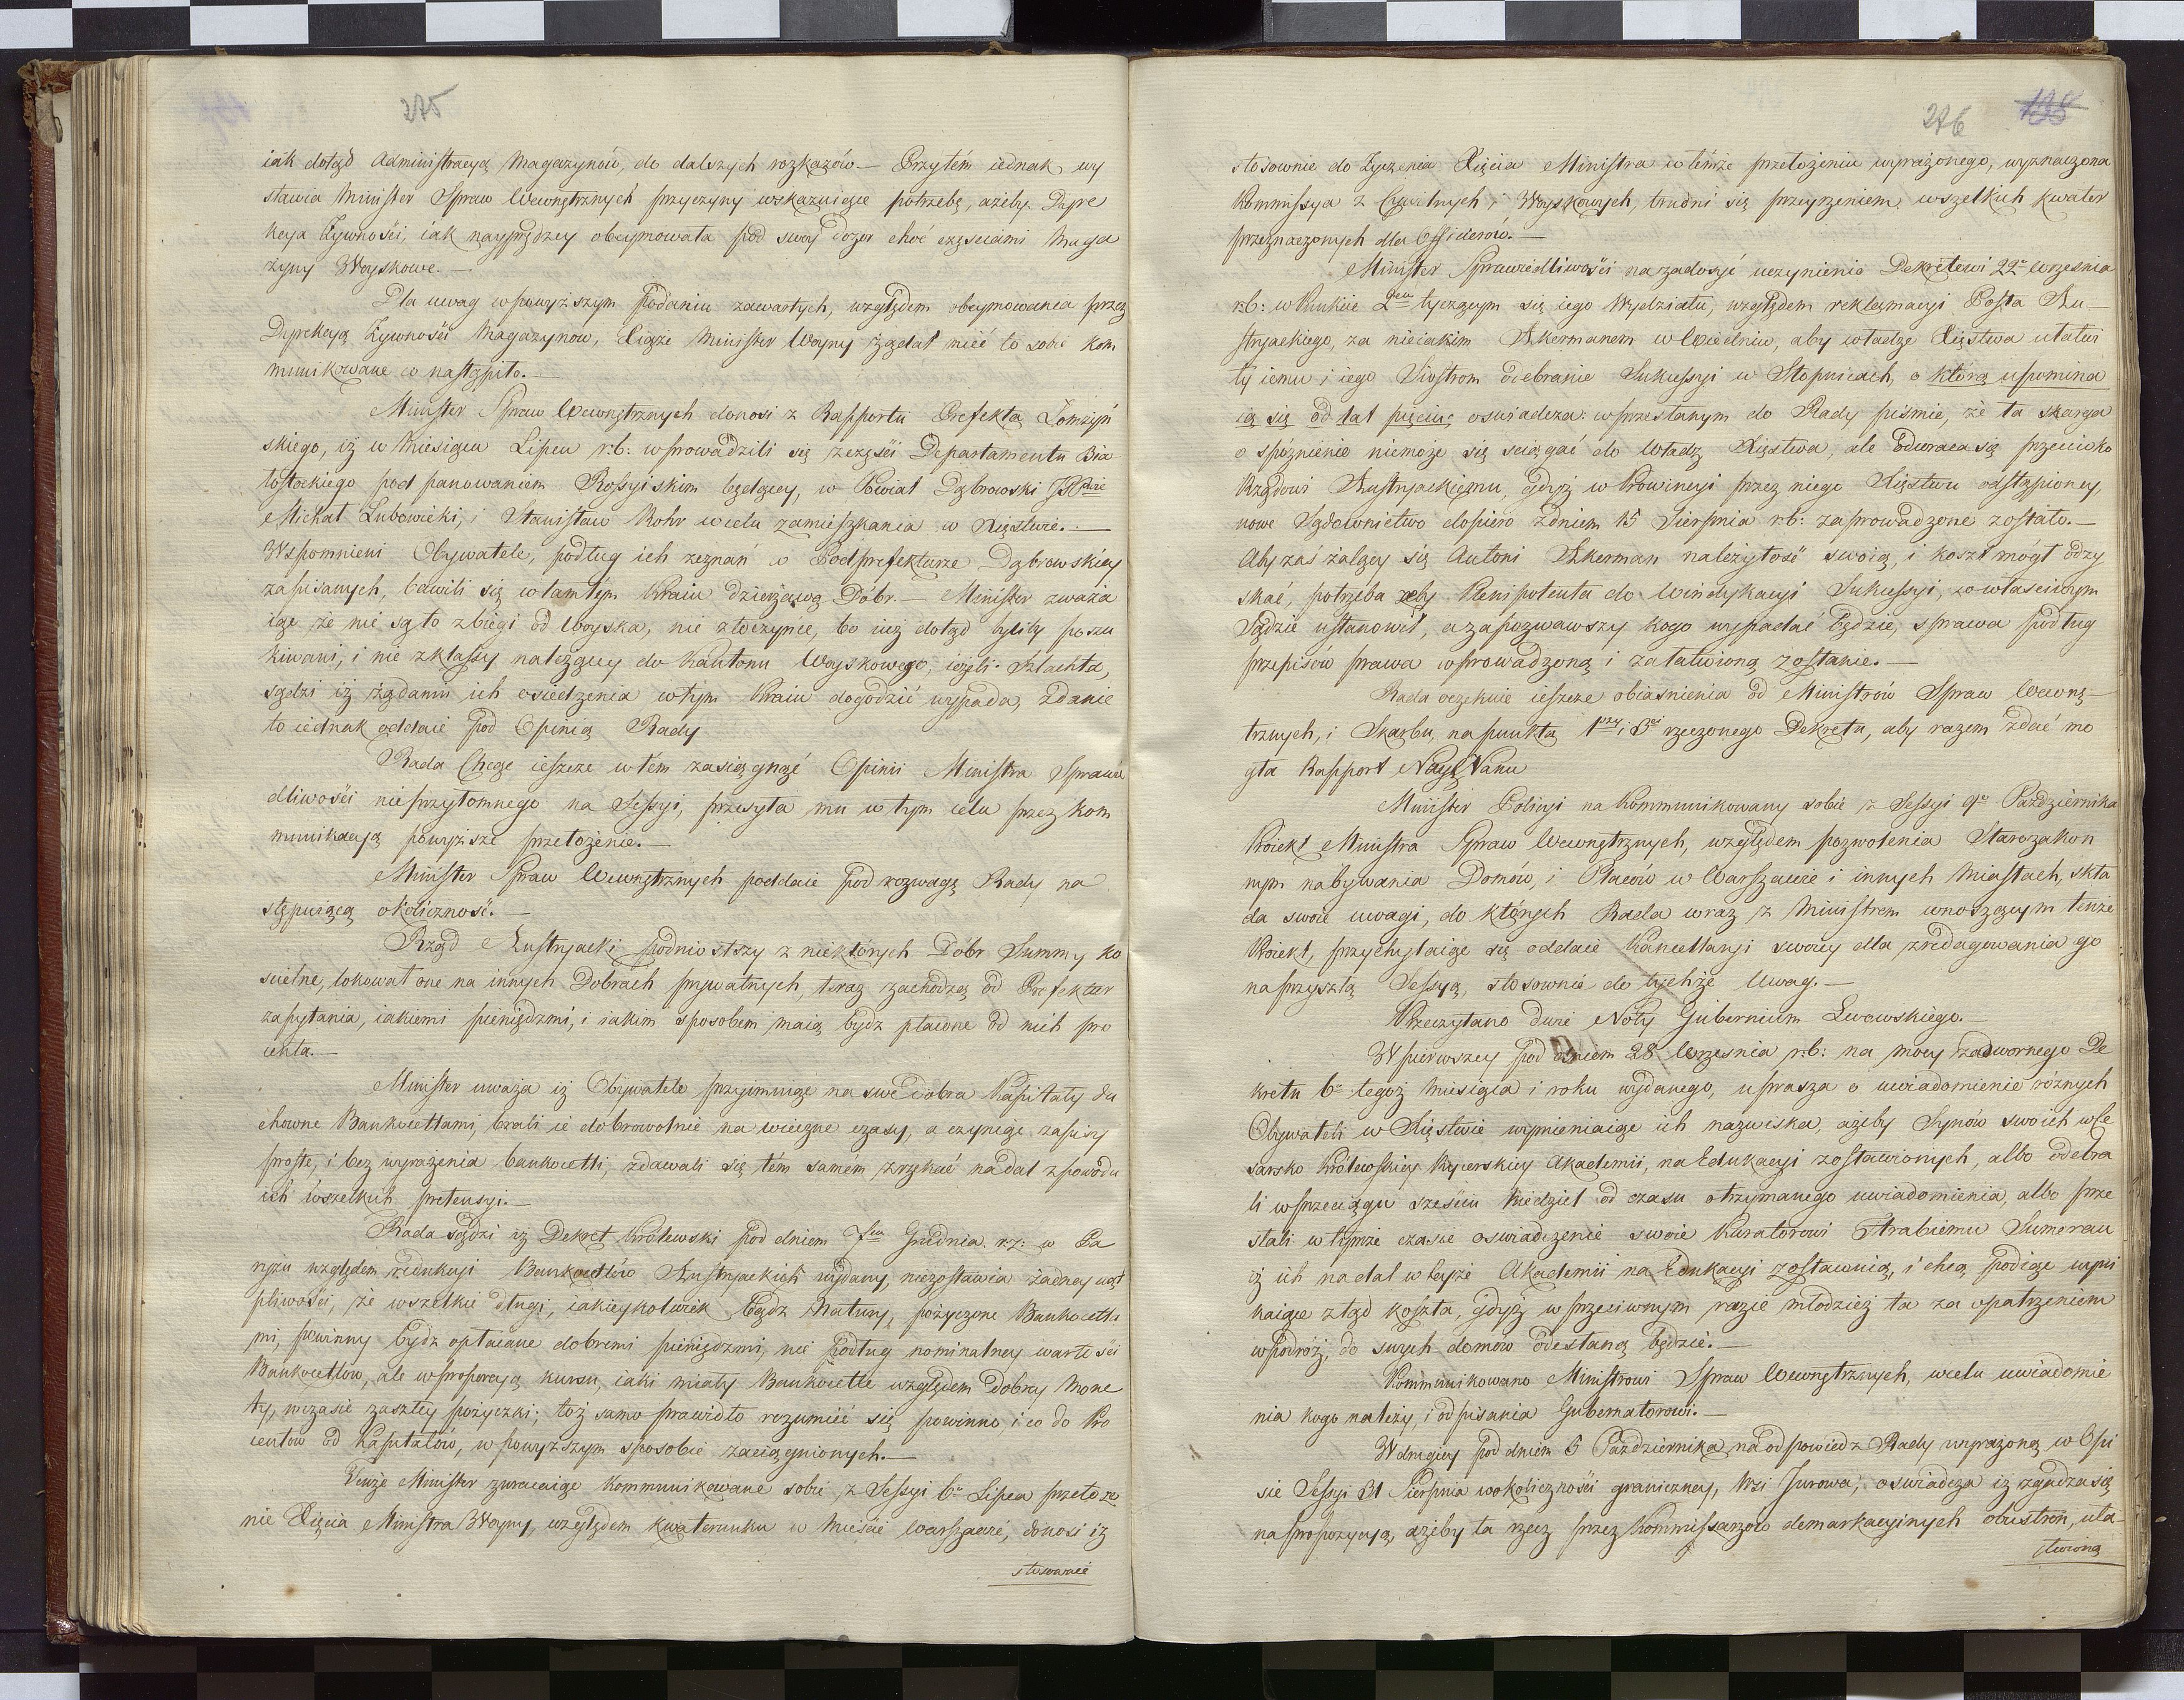 275
iak dotąd Administracyą Magazynów, do dalszych rozkazów — Przytém iednak wy
stawia Minister Spraw Wewnętrznych przyczyny wskazuiące potrzebę, ażeby Dyre
kcya Żywności, iak nayprędzey obeymowała pod swóy dozor choć częściami Maga
zyny Woyskowe. —
Dla uwag w powyższym podaniu zawartych, względem obeymowania przez
Dyrekcyą Żywności Magazynów, Xiąże Minister Woyny żądał mieć to sobie kom
munikowane co nastąpiło. —
Minister Spraw Wewnętrznych donosi z Rapportu Prefekta Łomżyń
skiego, iż w Miesiącu Lipcu r:b: wprowadzili się z części Departamentu Bia
łostockiego pod panowaniem Rossyiskim będącey, w Powiat Dąbrowski
Michał Lubowicki, i Stanisław Rohr w celu zamieszkania w Xięstwie. —
Wspomnieni Obywatele, podług ich zeznań w Podprefekturze Dąbrowskiey
zapisanych, bawili się w tamtym Kraiu dzierżawą Dóbr. — Minister zważa
iąc że nie są to zbiegi od Woyska, nie złoczyńce, bo iuż dotąd byliby poszu
kiwani, i nie z klassy należącey do Kantonu Woyskowego, ieżeli Szlachta,
sądzi iż żądaniu ich osiedzenia w tym Kraiu dogodzić wypada, zdanie
to iednak oddaie pod Opinią Rady
Rada Chcąc ieszcze w tém zasięgnąć Opinii Ministra Sprawie
dliwości nieprzytomnego na Sessyi, przesyła mu w tym celu przez kom
munikacyą powyższe przełożenie. —
Minister Spraw Wewnętrznych poddaie pod rozwagę Rady na
stępuiącą okoliczność. —
Rząd Austryacki podniosłszy z niektórych Dóbr Summy ko
ścielne, lokował one na innych Dobrach prywatnych, teraz zachodzą od Prefektur
zapytania, iakiemi pieniędzmi, i iakim sposobem maią bydz płacone od nich pro
centa. —
Minister uważa iż Obywatele przyimuiąc na swe Dobra Kapitały du
chowne Bankocetlami, brali ie dobrowolnie na wieczne czasy, a czyniąc zapisy
proste, i bez wyrażenia bankocetli, zdawali się tém samém zrzekać nadal z powodu
ich wszelkich pretensyi. —
Rada sądzi iż Dekret Królewski pod dniem 7go Grudnia r:z: w Pa
ryżu względem redukcyi Bankocetlów Austryackich wydany, niezostawia żadney wąt
pliwości, że wszelkie długi, iakieykolwiek bądz Natury, pożyczone Bankocetla
mi, powinny bydz opłacane dobremi pieniędzmi, nie podług nominalney wartości
Bankocetlów, ale w proporcyą kursu, iaki miały Bankocetle względem Dobrey Mone
ty, w czasie zaszłey pożyczki; toż samo prawidło rozumieć się powinno, i co do Pro
centow od Kapitalów, w powyższym sposobie zaciągnionych. —
Tenże Minister zwracaiąc kommunikowane sobie z Sessyi 6go Lipca przełoże
nie Xięcia Ministra Woyny, względem kwaterunku w Mieście Warszawie, donosi iż
stosownie
276 138
stosownie do Życzenia Xięcia Ministra w témże przełożeniu wyrażonego, wyznaczona
Kommissya z Cywilnych i Woyskowych, trudni się przeyrzeniem wszelkich kwater
przeznaczonych dla Officierów. —
Minister Sprawiedliwości na zadosyć uczynienie Dekretowi 22o Września
r:b: w Punkcie 2gim tyczącym się iego Wydziału, względem reklamacyi Posła Au
stryackiego, za nieiakim Akermanem w Wiedniu, aby władze Xięstwa ułatwi
ły iemu i iego Siostrom odebranie Sukcessyi w Stopnicach, o którą upomina
ią się od lat pięciu, oświadcza w przesłanym do Rady piśmie, że ta skarga
o spóźnienie niemoże się ściągać do Władz Xięstwa, ale odwraca się przeciwko
Rządowi Austryackiemu, gdyż w Prowincyi przez niego Xięstwu odstąpioney,
nowe Sądownictwo dopiero z dniem 15 Sierpnia r:b: zaprowadzone zostało. —
Aby zaś żalący się Antoni Akerman należytość swoią, i koszt mógł odzy
skać, potrzeba żeby Plenipotenta do Windykacyi Sukcessyi, w właściwym
Sądzie ustanowił, a zapozwawszy kogo wypadać będzie, sprawa podług
przepisów prawa wprowadzoną i załatwioną zostanie. —
Rada oczekuie ieszcze obiaśnienia od Ministrów Spraw Wewnę
trznych, i Skarbu, na punkta 1szy i 3ci rzeczonego Dekretu, aby razem zdać mo
gła Rapport Nayj: Panu
Minister Policyi na Kommunikowany sobie z Sessyi 9o Października
Proiekt Ministra Spraw Wewnętrznych, względem pozwolenia Starozakon
nym nabywania Domów, i Placów w Warszawie i innych Miastach, skła
da swoie uwagi, do których Rada wraz z Ministrem wnoszącym tenże
Proiekt, przychylaiąc się oddaie Kancellaryi swoiey dla zredagowania go
na przyszłą Sessyą, stosownie do tychże Uwag. —
Przeczytano dwie Noty Gubernium Lwowskiego. —
W pierwszey pod dniem 28 Września r:b: na mocy nadwornego De
kretu 6o tegoż Miesiąca i roku wydanego, uprasza o uwiadomienie różnych
Obywateli w Xięstwie wymieniaiąc ich nazwiska, ażeby Synów swoich w Ce
sarsko Królewskiey Rycerskiey Akademii, na Edukacyi zostawionych, albo odebra
li w przeciągu sześciu Niedziel od czasu otrzymanego uwiadomienia, albo prze
słali w tymże czasie oświadczenie swoie Kuratorowi Hrabiemu Sumerau
iż ich nadal w teyże Akademii na Edukacyi zostawuią, i chcą podiąć wyni
kaiące ztąd koszta, gdyż w przeciwnym razie młodzież ta za opatrzeniem
w podróż, do swych domów odesłaną będzie. —
Kommunikowano Ministrowi Spraw Wewnętrznych, w celu uwiadomie
nia kogo należy, i odpisania Gubernatorowi. —
W drugiey pod dniem 5 Października na odpowiedz Rady wyrażoną w Opi
sie Sessyi 31 Sierpnia w okoliczności graniczney, Wsi Jurowa, oświadcza iż zgadza się
na propozycyą, ażeby ta rzecz przez Kommissarzów demarkacyinych obustron, uła
twioną